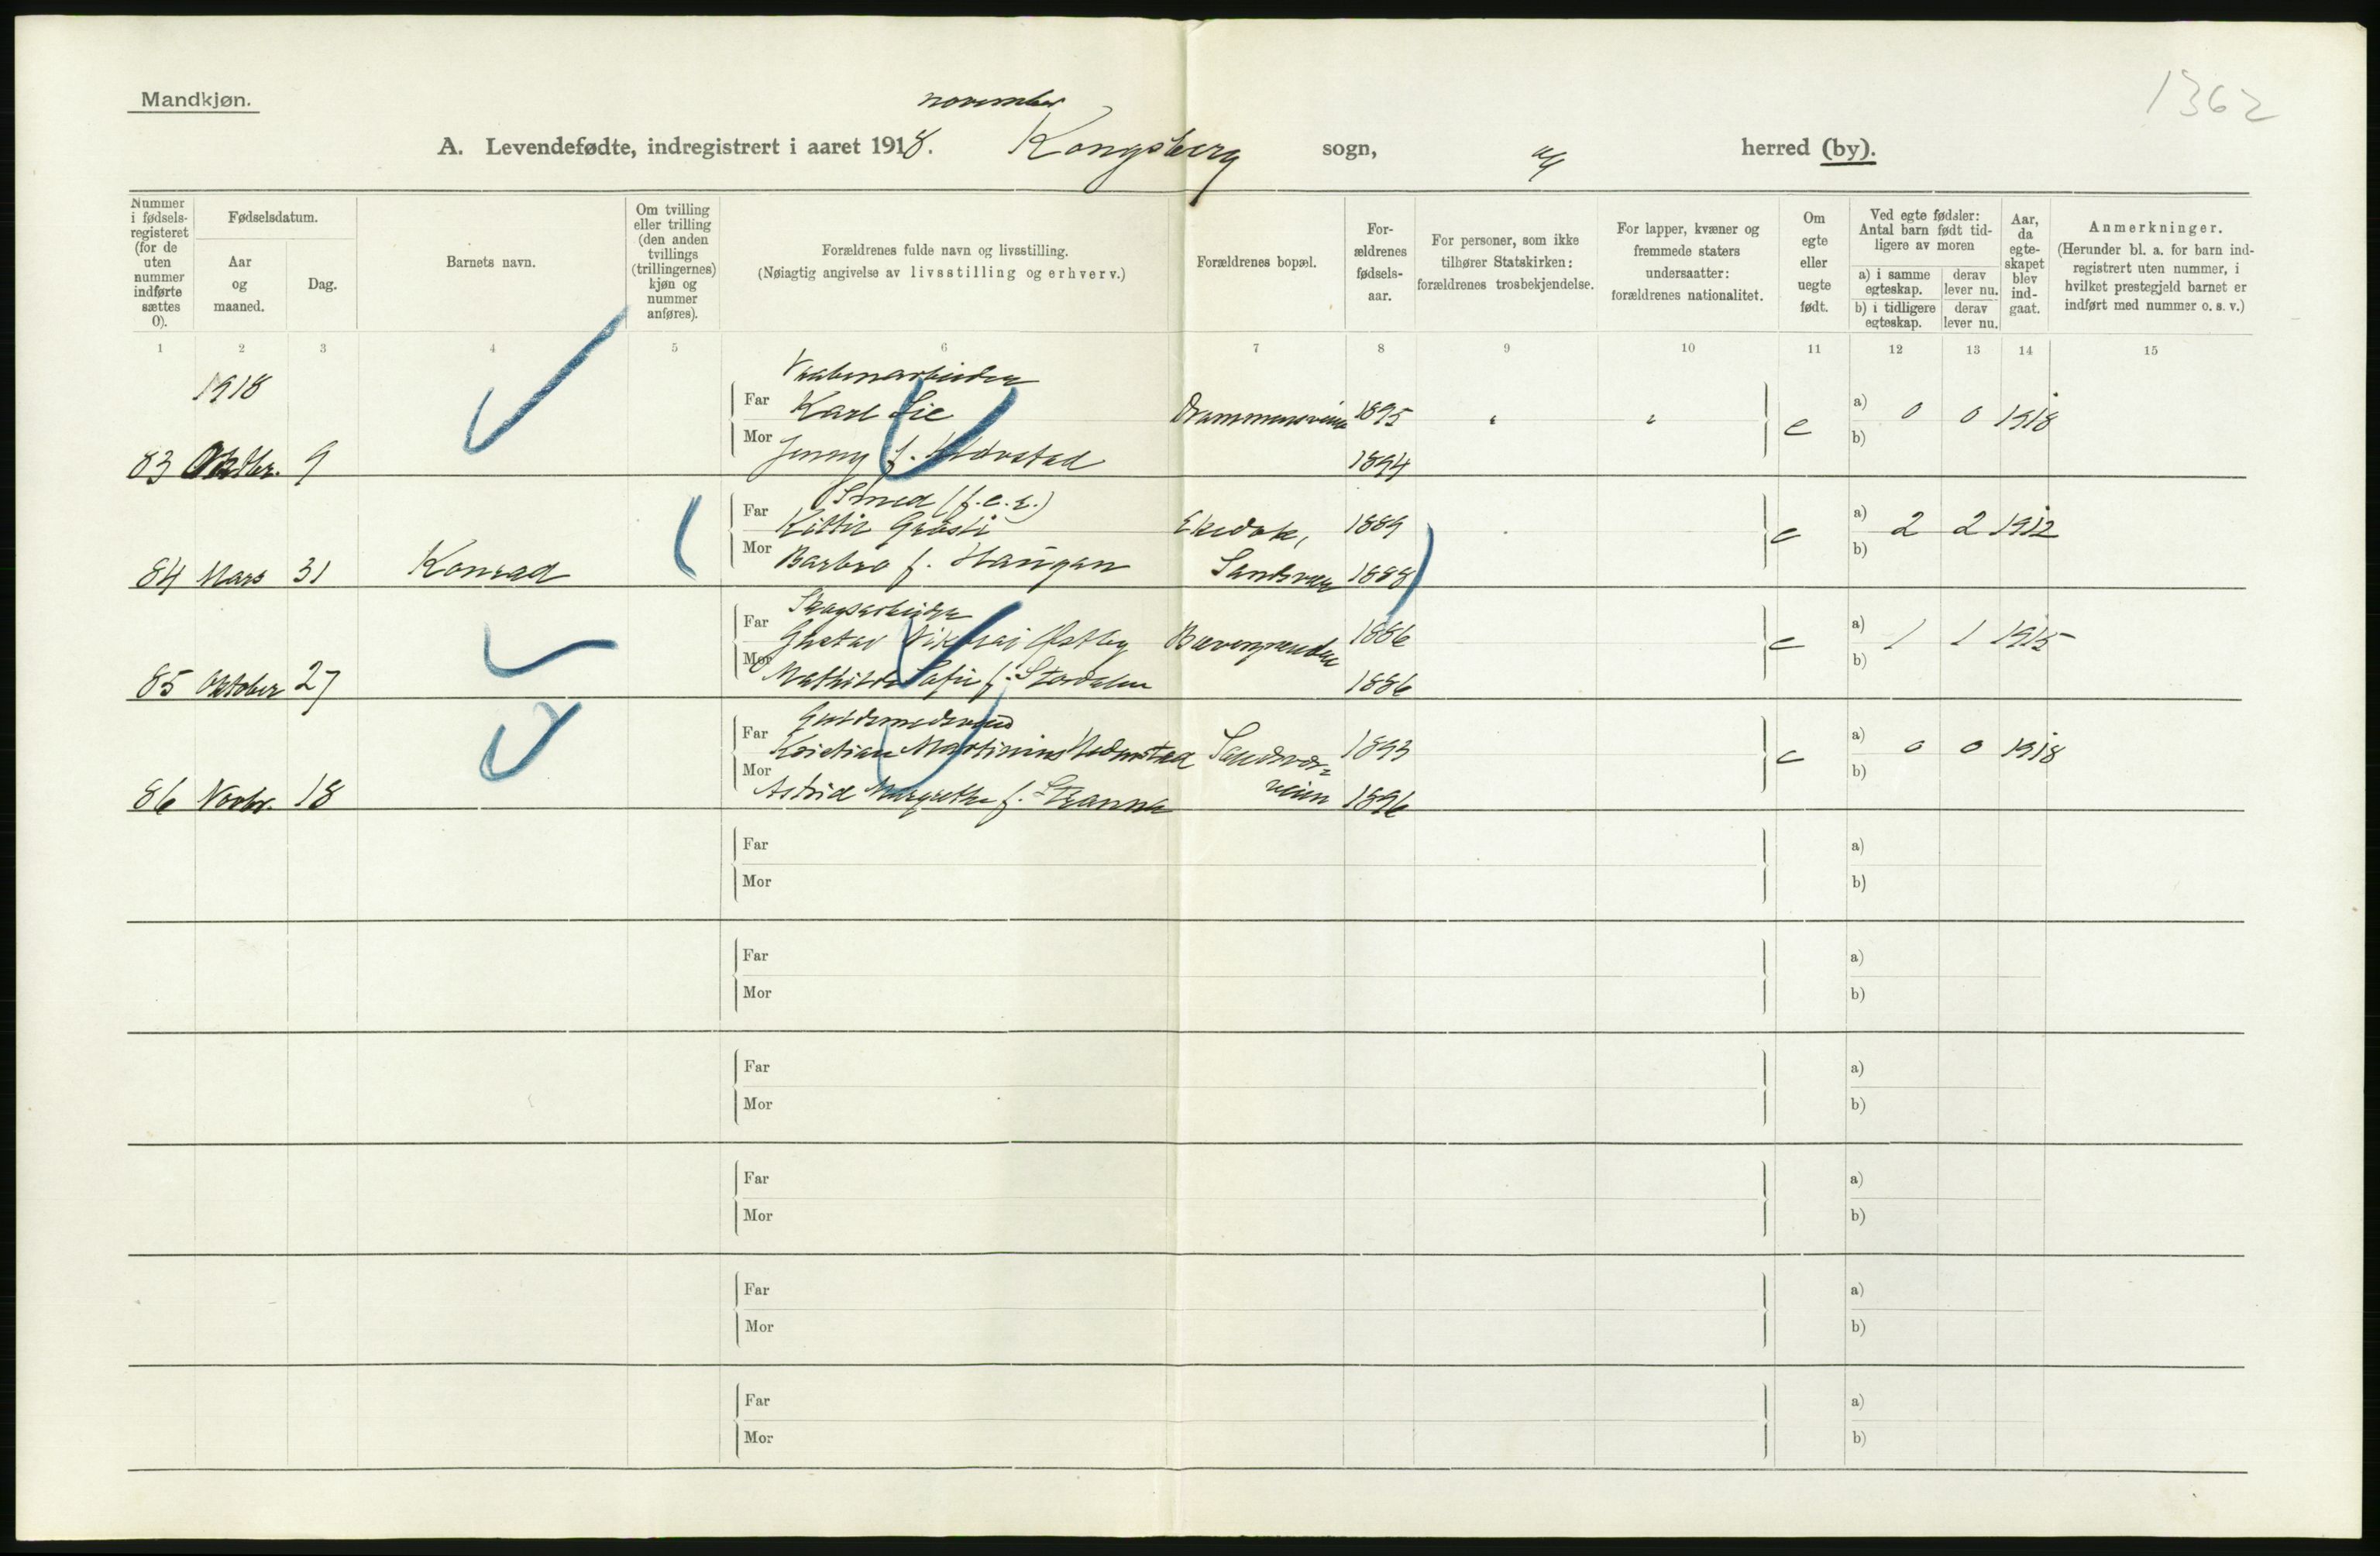 Mandkjøn.
1362
november
A. Levendefødte, indregistrert i aaret 1918. Kongsberg sogn, herred (by).
Nummer i fødselsregisteret (for de uten nummer indførte sættes 0).
Fødselsdatum.
Aar og maaned.
Dag.
Barnets navn.
Om tvilling eller trilling (den anden tvillings (trillingernes) kjøn og nummer anføres).
Forældrenes fulde navn og livsstilling.
(Nøiagtig angivelse av livsstilling og erhverv.)
Forældrenes bopæl.
Forældrenes fødselsaar.
For personer, som ikke tilhører Statskirken: forældrenes trosbekjendelse.
For lapper, kvæner og fremmede staters undersaatter: forældrenes nationalitet.
Om egte eller uegte født.
Ved egte fødsler: Antal barn født tidligere av moren
a) i samme egteskap.
derav lever nu.
b) i tidligere egteskap.
derav lever nu.
Aar, da egteskapet blev indgaat.
Anmerkninger.
(Herunder bl. a. for barn indregistrert uten nummer, i hvilket prestegjeld barnet er indført med nummer o. s. v.)
1 2 3 4 5 6 7 8 9 10 11 12 13 14 15
1918
Vaabenarbeider
Far Karl Lie Drammensveien 1895 " " e a) 0 0 1918
b)
83 Oktbr. 9 Mor Jenny f. 1894
Smed (f.e.r.)
Far Kittil Gråsli Ekedok, 1889 e a) 2 2 1912
b)
84 Mars 31 Konrad Mor Barbro f. Haugan Sandsvær 1888
Sagarbeider
Far Gustav Nikolai Østby Bævergrænden 1886 e a) 1 1 1915
b)
85 Oktober 27 Mor Mathilde Sofie f. Stordalen 1886
Guldsmedsvend
Far Kristian Martinius Hedenstad Sandsværveien 1893 e a) 0 0 1918
b)
86 Novbr. 18 Mor Astrid Margrethe f. 1896
Far a)
Mor b)
Far a)
Mor b)
Far a)
Mor b)
Far a)
Mor b)
Far a)
Mor b)
Far a)
Mor b)